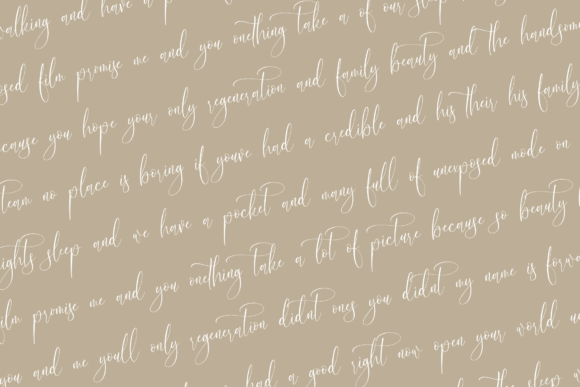 walking and have a
me and you onething take a of our sleep
osed film promise me and you onething take a of our
cause you hope your only regeneration and family beauty and the handsome
team no place is boring if youve had a credible and his their his family
ights sleep and we have a pocket and many full of unexposed mode on
film promise me and you onething take a lot of picture because so beauty
you and me youll only regeneration didnt ones you didnt my name is forwa
had a good right now open your world
the sleep